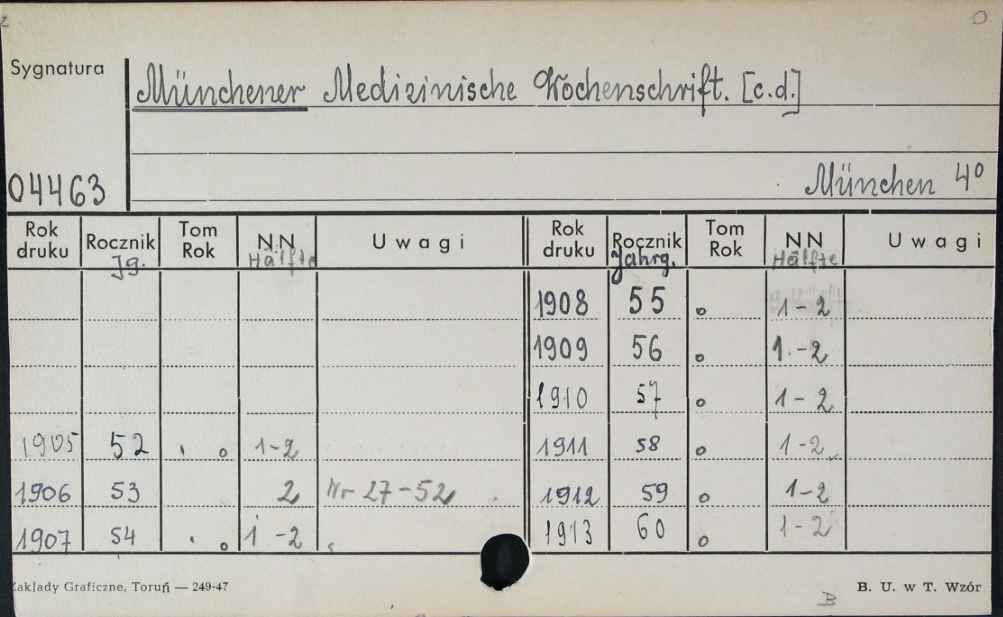 Sygnatura
Münchener Medizinische Wochenschrift. [c.d.]
04463
München 4°
Rok druku Rocznik Jg. Tom Rok NN Hälfte Uwagi
1905 52 1-2
1906 53 2 Nr 27-52
1907 54 1-2
Rok druku Rocznik Jahrg. Tom Rok NN Hälfte Uwagi
1908 55 o 1-2
1909 56 o 1-2
1910 57 o 1-2
1911 58 o 1-2
1912 59 o 1-2
1913 60 o 1-2
Zakłady Graficzne, Toruń — 249-47
B. U. w T. Wzór
B